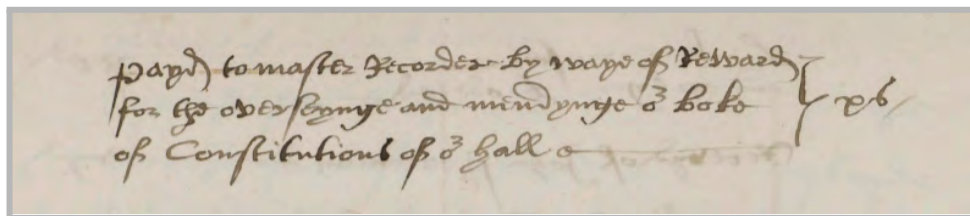 payd to master Recorder by waye of Reward
for the overseynge and mendynge oʳ boke xs
of Constitutions of oʳ hall